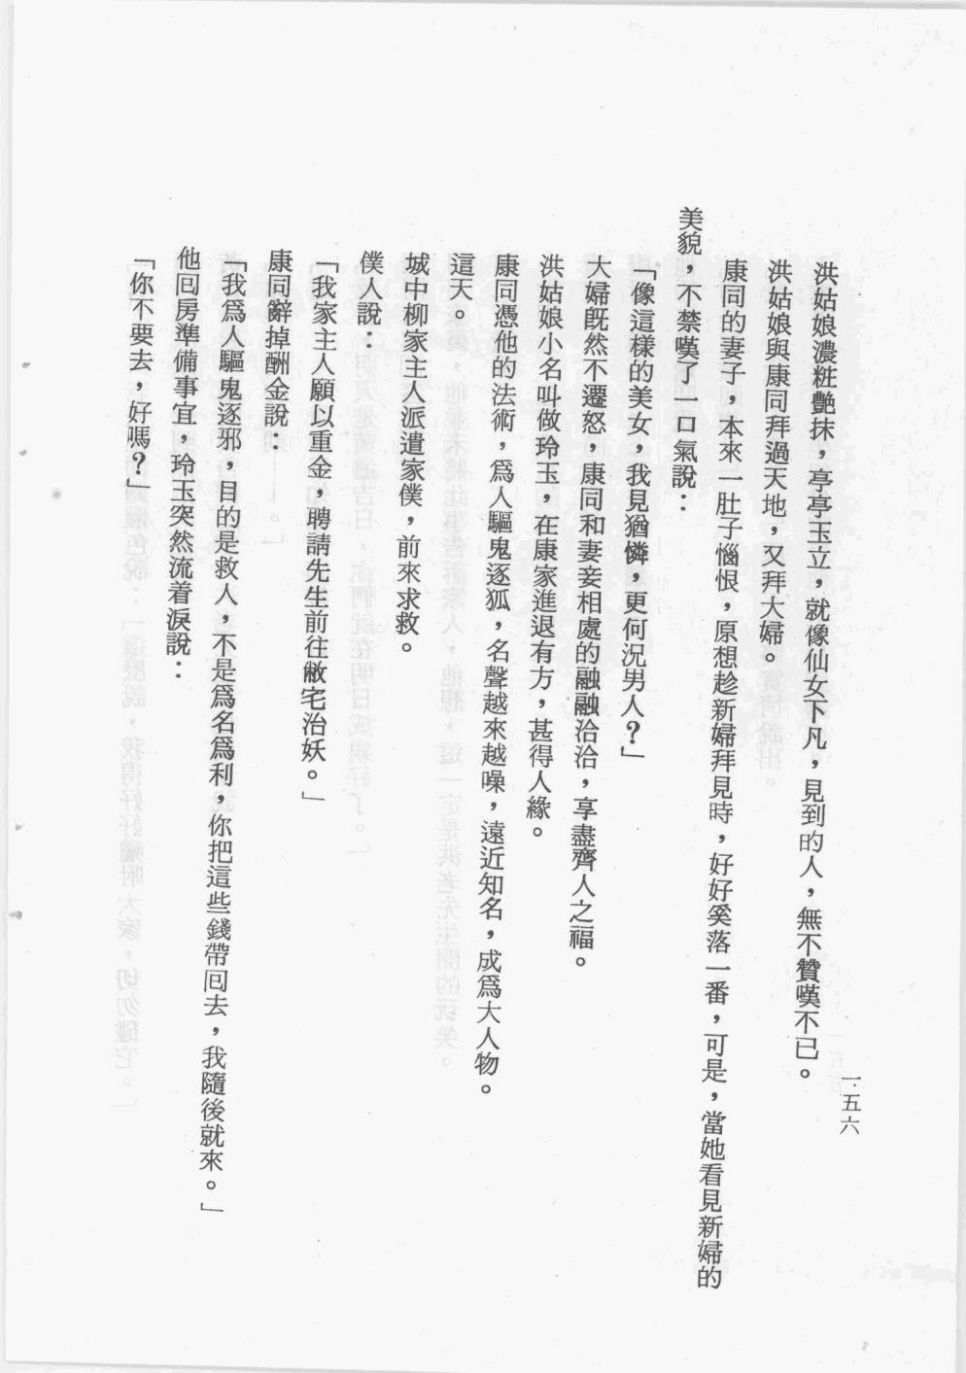 一五六
洪姑娘濃粧艷抹，亭亭玉立，就像仙女下凡，見到的人，無不贊嘆不已。
洪姑娘與康同拜過天地，又拜大婦。
康同的妻子，本來一肚子惱恨，原想趁新婦拜見時，好好奚落一番，可是，當她看見新婦的
美貌，不禁嘆了一口氣說：
「像這樣的美女，我見猶憐，更何況男人？」
大婦既然不遷怒，康同和妻妾相處的融融洽洽，享盡齊人之福。
洪姑娘小名叫做玲玉，在康家進退有方，甚得人緣。
康同憑他的法術，爲人驅鬼逐狐，名聲越來越噪，遠近知名，成爲大人物。
這天。
城中柳家主人派遣家僕，前來求救。
僕人說：
「我家主人願以重金，聘請先生前往敝宅治妖。」
康同辭掉酬金說：
「我爲人驅鬼逐邪，目的是救人，不是爲名爲利，你把這些錢帶回去，我隨後就來。」
他回房準備事宜，玲玉突然流着淚說：
「你不要去，好嗎？」